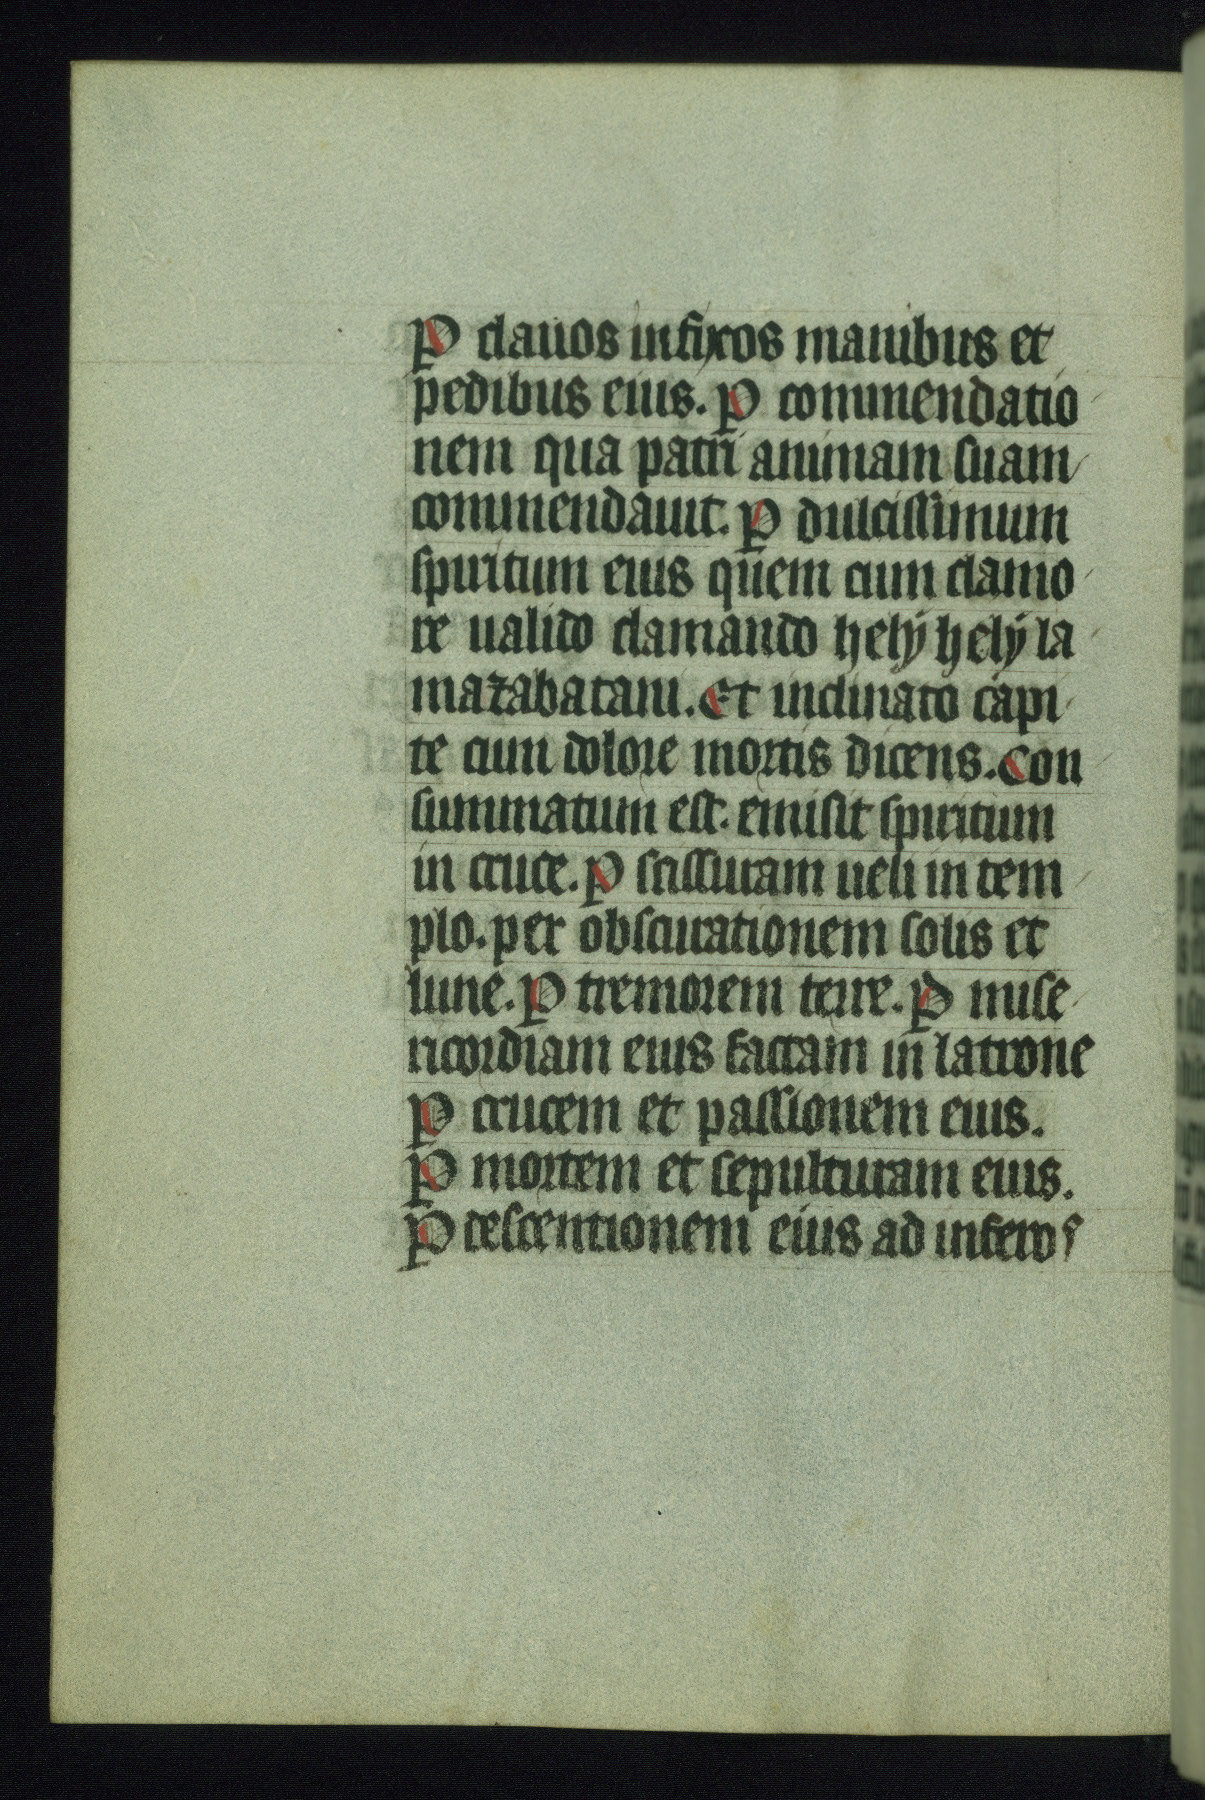 P clauos infixos manibus et
pedibus eius. P commendatio
nem qua patri animam suam
commendauit. P dulcissimum
spiritum eius quem cum clamo
re ualido clamando hely hely la
mazabatani. Et inclinato capi
te cum dolore mortis dicens. Con
summatum est. emisit spiritum
in cruce. P scissuram ueli in tem
plo. per obscurationem solis et
lune. P tremorem terre. P mise
ricordiam eius factam in latrone
P crucem et passionem eius.
P mortem et sepulturam eius.
P descentionem eius ad inferos